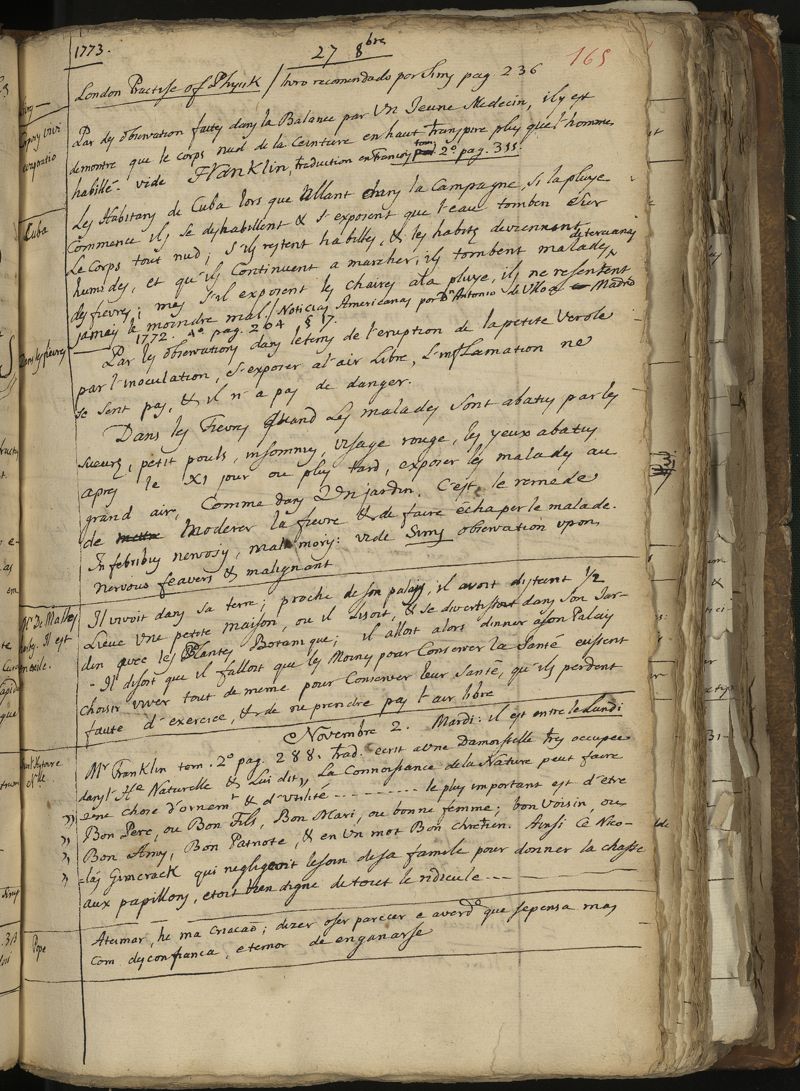 1773.
27 8bre
165
London Practise of Physick / livro recomendado por Simy pag. 236
Par des observation faites dans la Balance par Un Jeune Medecin, il y est
demontre que le corps nud de la Ceinture en haut transpire plus que l'homme
habillé. vide Franklin, traduction en Francois tom. 2º pag. 311.
Cuba
Les Habitans de Cuba lors que Allant dans la Campagne, si la pluye
Commence ils se deshabillent & s'exposent que l'eau tomben sur
Le Corps tout nud; s'ils restent habilles, & les habits deviennent
humides, et qu'ils Continuent a marcher, ils tombent malades
des fievres; mais s'il exposent les chaires ala pluye, ils ne resentent
jamais le moindre mal / Noticias Americanas por Dn Antonio de Ulloa Madrid
1772. 4º pag. 204 § 17.
Dans les fievres
Par les observations dans letems de l'eruption de la petite Verole
par l'inoculation, s'exposer al'air Libre, L'inflamation ne
se sent pas, & il n'a pas de danger.
Dans les Fievres Quand Les malades sont abatus par les
sueurs, petit pouls, insomnies, visage rouge, les yeux abatus
apres le XI jour ou plus tard, exposer les malades au
grand air, Comme dans Un jardin. C'est le remede
de Moderer la fievre & de faire échaper le malade.
In febribus nervosis, mali moris: vide Simy observation upon
Nervous feavers & malignant
Mr De Malhes
Il est
en exile.
Il vivoit dans sa terre; proche de son palais, il avoit distant 1/2
Lieue Une petite maison, ou il lisoit, & se divertissoit dans son Jar-
din avec les Plantes Botanique; il alloit alors dinner a son Palais
- Il disoit que il falloit que les Moines pour Conserver la Santé eussent
choisir vivre tout de meme pour Conserver leur Santé, qu'ils perdent
faute d'exercice, & de ne prendre pas l'air libre
Novembre 2. Mardi: il est entre le Lundi
Mr Franklin tom. 2º pag. 288. trad. ecrit a Une Damoiselle tres occupee
dans l'Hre Naturelle & Lui dit, La Connoissance de la Nature peut faire
„ Une chose d'ornemt & d'Utilité - - - - - - - - - le plus important est d'etre
„ Bon Pere, ou Bon Fils, Bon Mari, ou bonne femme; bon Voisin, ou
„ Bon Amy, Bon Patriote, & en Un mot Bon chretien. Ainsi Ce Nico-
„ las Gimcrack qui negligeoit le soin de sa famile pour donner la chasse
aux papillons, etoit bien digne de tout le ridicule - - -
Pope
Ateimar, he ma criacao; dizer o seu parecer e averdº que sepensa mas
Com desconfianca, e temor de enganarse